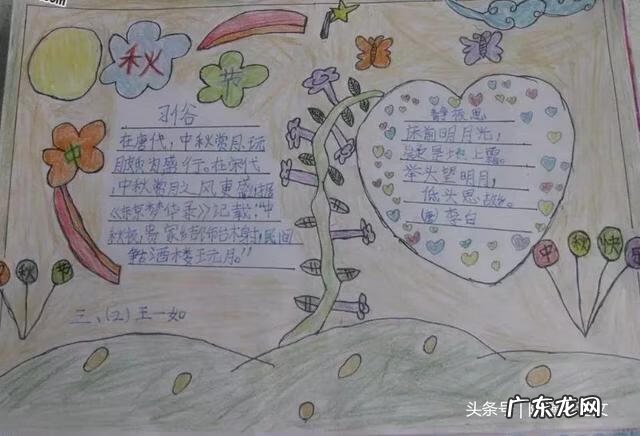 秋
节
中
习俗
在唐代，中秋赏月、玩
月颇为盛行。在宋代
，中秋赏月之风更盛，据
《东京梦华录》记载："中
秋夜，贵家结饰台榭，民间
酒楼玩月。"
三、(2) 王一如
静夜思
床前明月光，
疑是地上霜。
举头望明月，
低头思故。
李白
秋 节
中 秋 快 乐
头条号
广东龙网